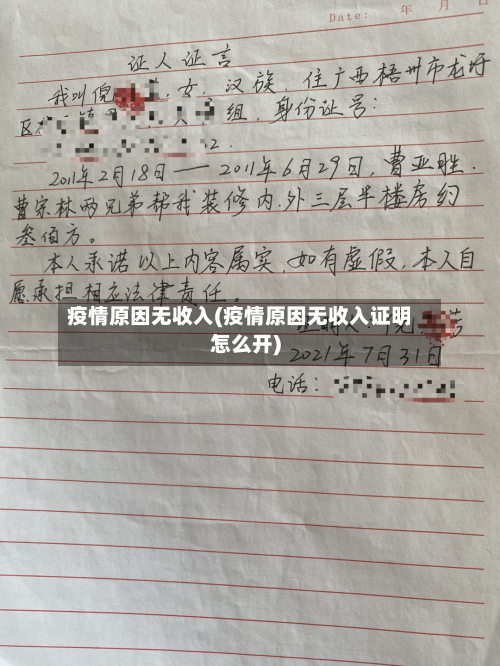 Date: 年 月 日
证人证言
我叫倪 ，女，汉族，住广西梧州市龙圩
区 组，身份证号：
2011年2月18日——2011年6月29日，曹亚胜.
曹家林两兄弟帮我装修内.外三层半楼房约
叁佰方。
本人承诺以上内容属实，如有虚假，本人自
愿承担相应法律责任。
疫情原因无收入(疫情原因无收入证明
怎么开)
2021年7月31日
电话：